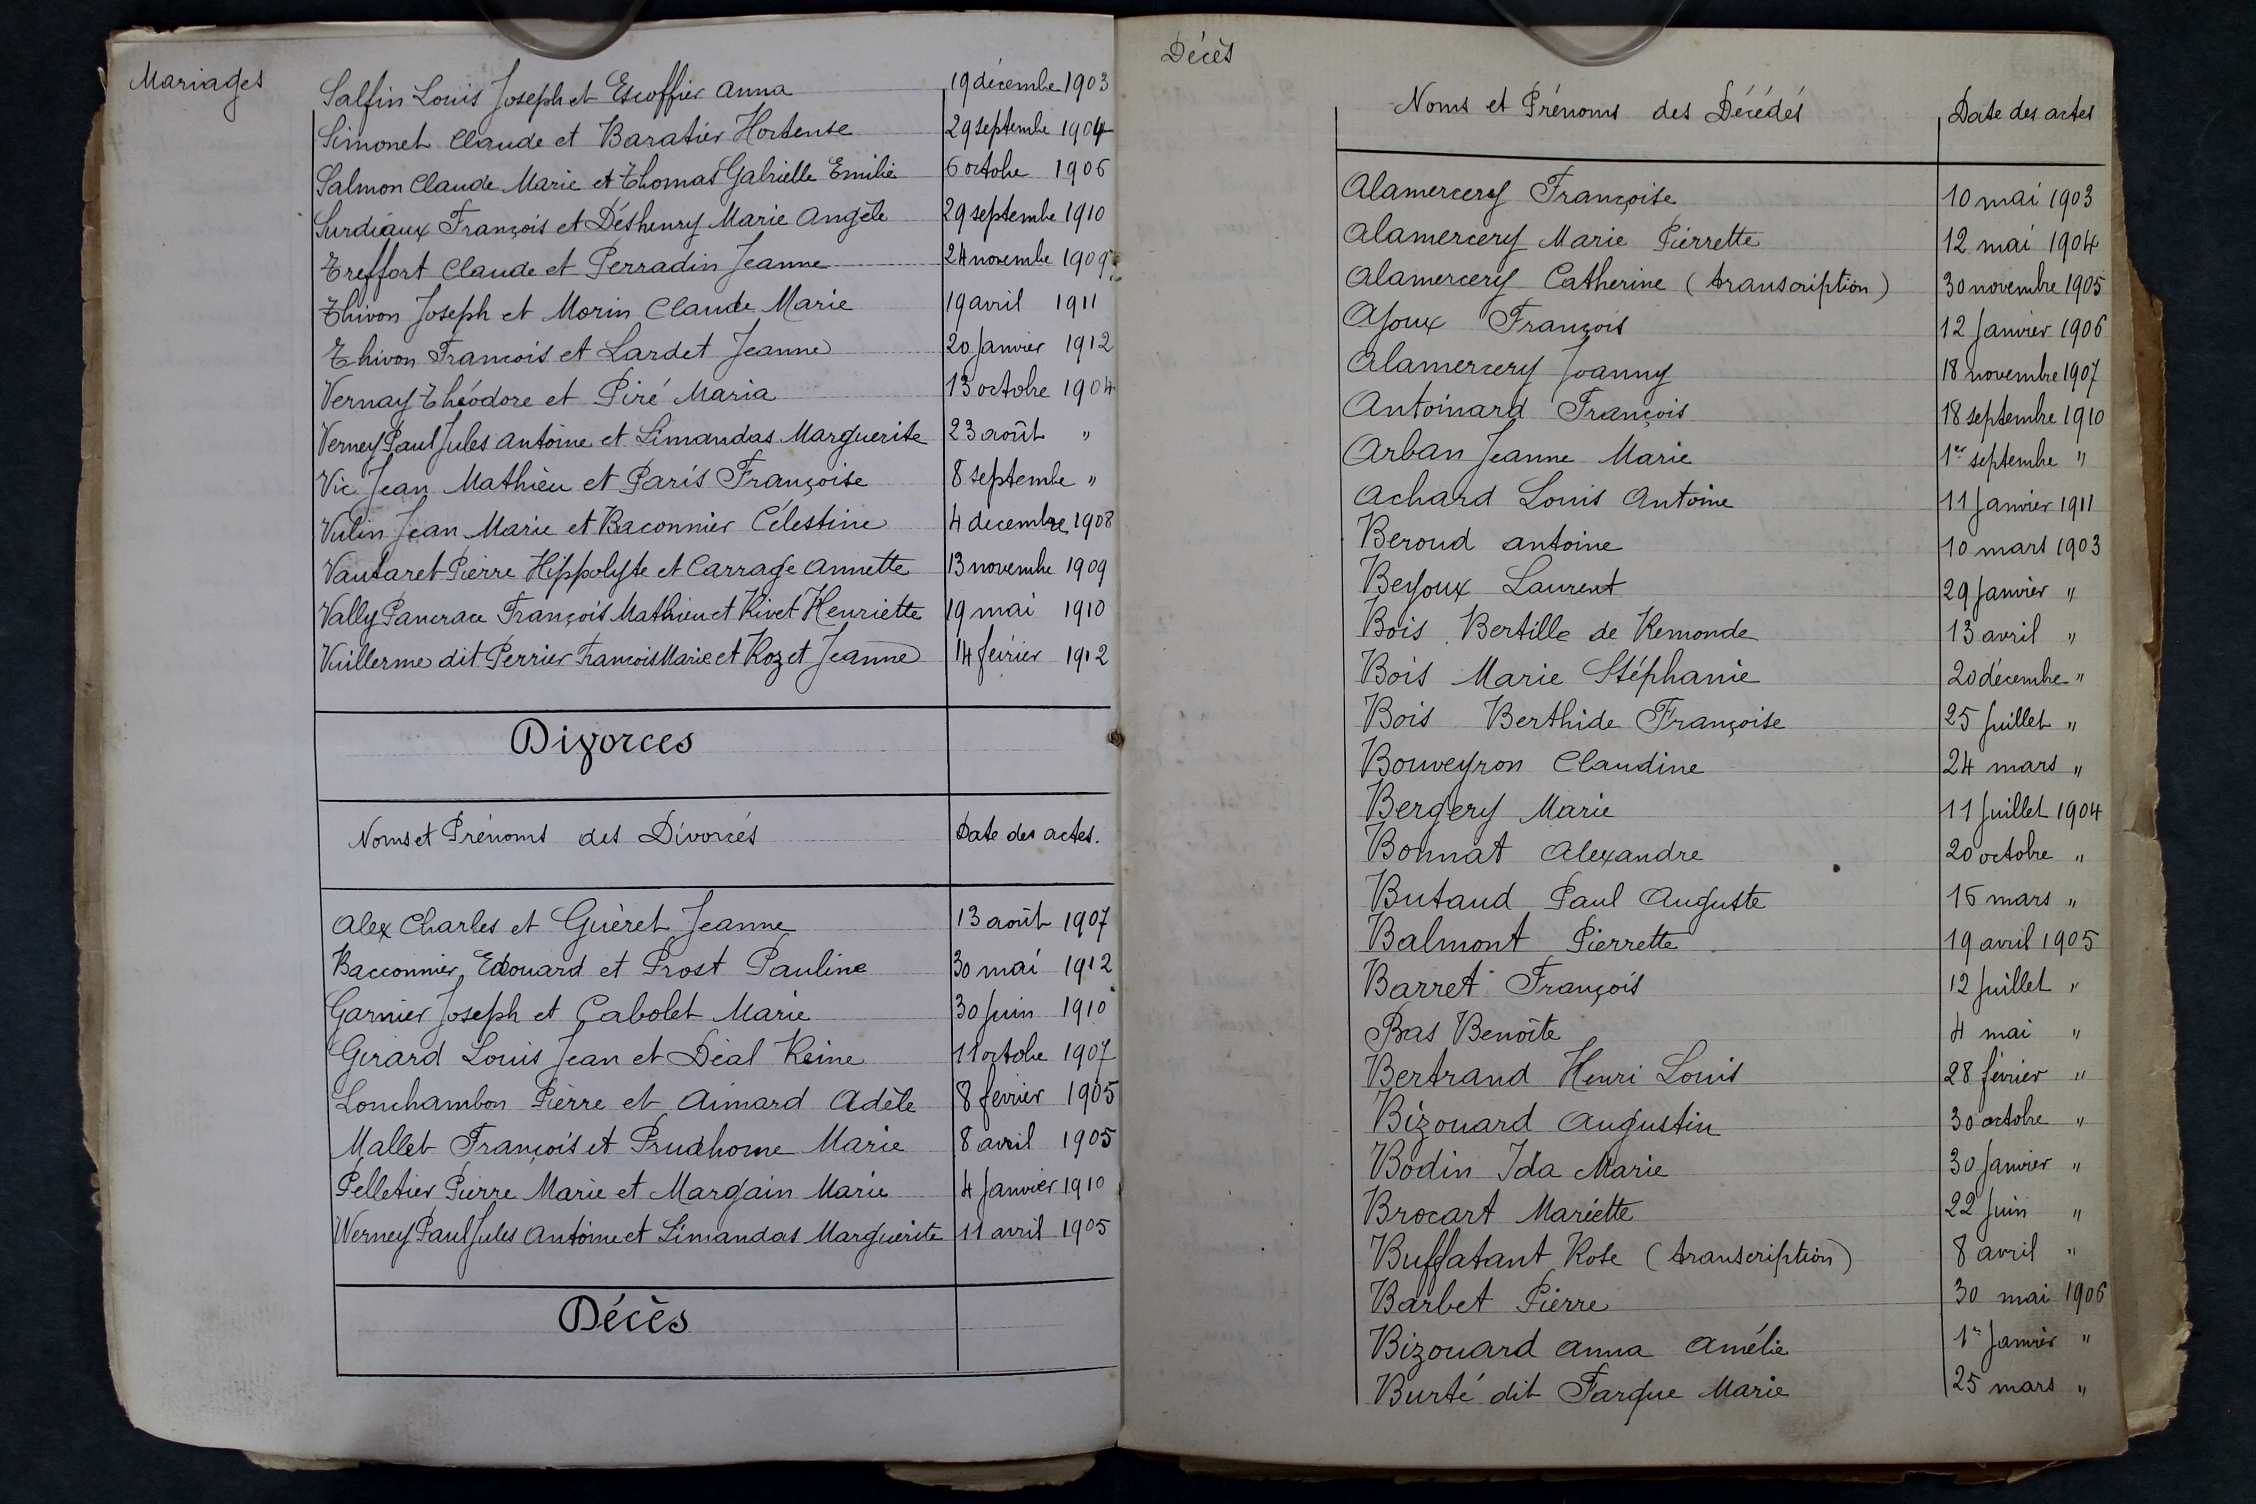 Mariages
Salfin Louis Joseph et Escoffier Anna 19 décembre 1903
Simonet Claude et Baratier Hortense 29 septembre 1904
Salmon Claude Marie et Thomas Gabrielle Emilie 6 octobre 1906
Surdiaux François et Déshenry Marie Angèle 29 septembre 1910
Treffort Claude et Perradin Jeanne 24 novembre 1909
Thivon Joseph et Morin Claude Marie 19 avril 1911
Thivon Francois et Lardet Jeanne 20 Janvier 1912
Vernay Théodore et Piré Maria 13 octobre 1904
Verney Paul Jules Antoine et Limandas Marguerite 23 août "
Vic Jean Mathieu et Paris Françoise 8 septembre "
Vulin Jean Marie et Baconnier Célestine 4 decembre 1908
Vautaret Pierre Hippolyte et Carrage Annette 13 novembre 1909
Vally Pancrace François Mathieu et Rivet Henriette 19 mai 1910
Vuillerme dit Perrier Francois Marie et Rozet Jeanne 14 février 1912
Divorces
Noms et Prénoms des Divorcés Date des actes.
Alex Charles et Guéret Jeanne 13 août 1907
Bacconnier Edouard et Prost Pauline 30 mai 1912
Garnier Joseph et Cabolet Marie 30 Juin 1910
Girard Louis Jean et Déal Reine 11 octobre 1907
Lonchambon Pierre et Aimard Adèle 8 fevrier 1905
Mallet François et Prudhome Marie 8 avril 1905
Pelletier Pierre Marie et Margain Marie 4 Janvier 1910
Werney Paul Jules Antoine et Limandas Marguerite 11 avril 1905
Décès
Décès
Noms et Prénoms des Décédés Date des actes
Alamercery Françoise 10 mai 1903
Alamercery Marie Pierrette 12 mai 1904
Alamercery Catherine (transcription) 30 novembre 1905
Ajoux François 12 Janvier 1906
Alamercery Joanny 18 novembre 1907
Antoinard François 18 septembre 1910
Arban Jeanne Marie 1er septembre "
Achard Louis Antoine 11 Janvier 1911
Beroud Antoine 10 mars 1903
Bejoux Laurent 29 Janvier "
Bois Bertille de Remonde 13 avril "
Bois Marie Stéphanie 20 décembre "
Bois Berthide Françoise 25 Juillet "
Bouveyron Claudine 24 mars "
Bergery Marie 11 Juillet 1904
Bonnat Alexandre 20 octobre "
Butaud Paul Auguste 16 mars "
Balmont Pierrette 19 avril 1905
Barret François 12 Juillet "
Bas Benoîte 4 mai "
Bertrand Henri Louis 28 février "
Bizouard Augustin 30 octobre "
Bodin Ida Marie 30 Janvier "
Brocart Mariette 22 Juin "
Buffatant Rose (transcription) 8 avril "
Barbet Pierre 30 mai 1906
Bizouard Anna Amélie 1er Janvier "
Burté dit Fargue Marie 25 mars "